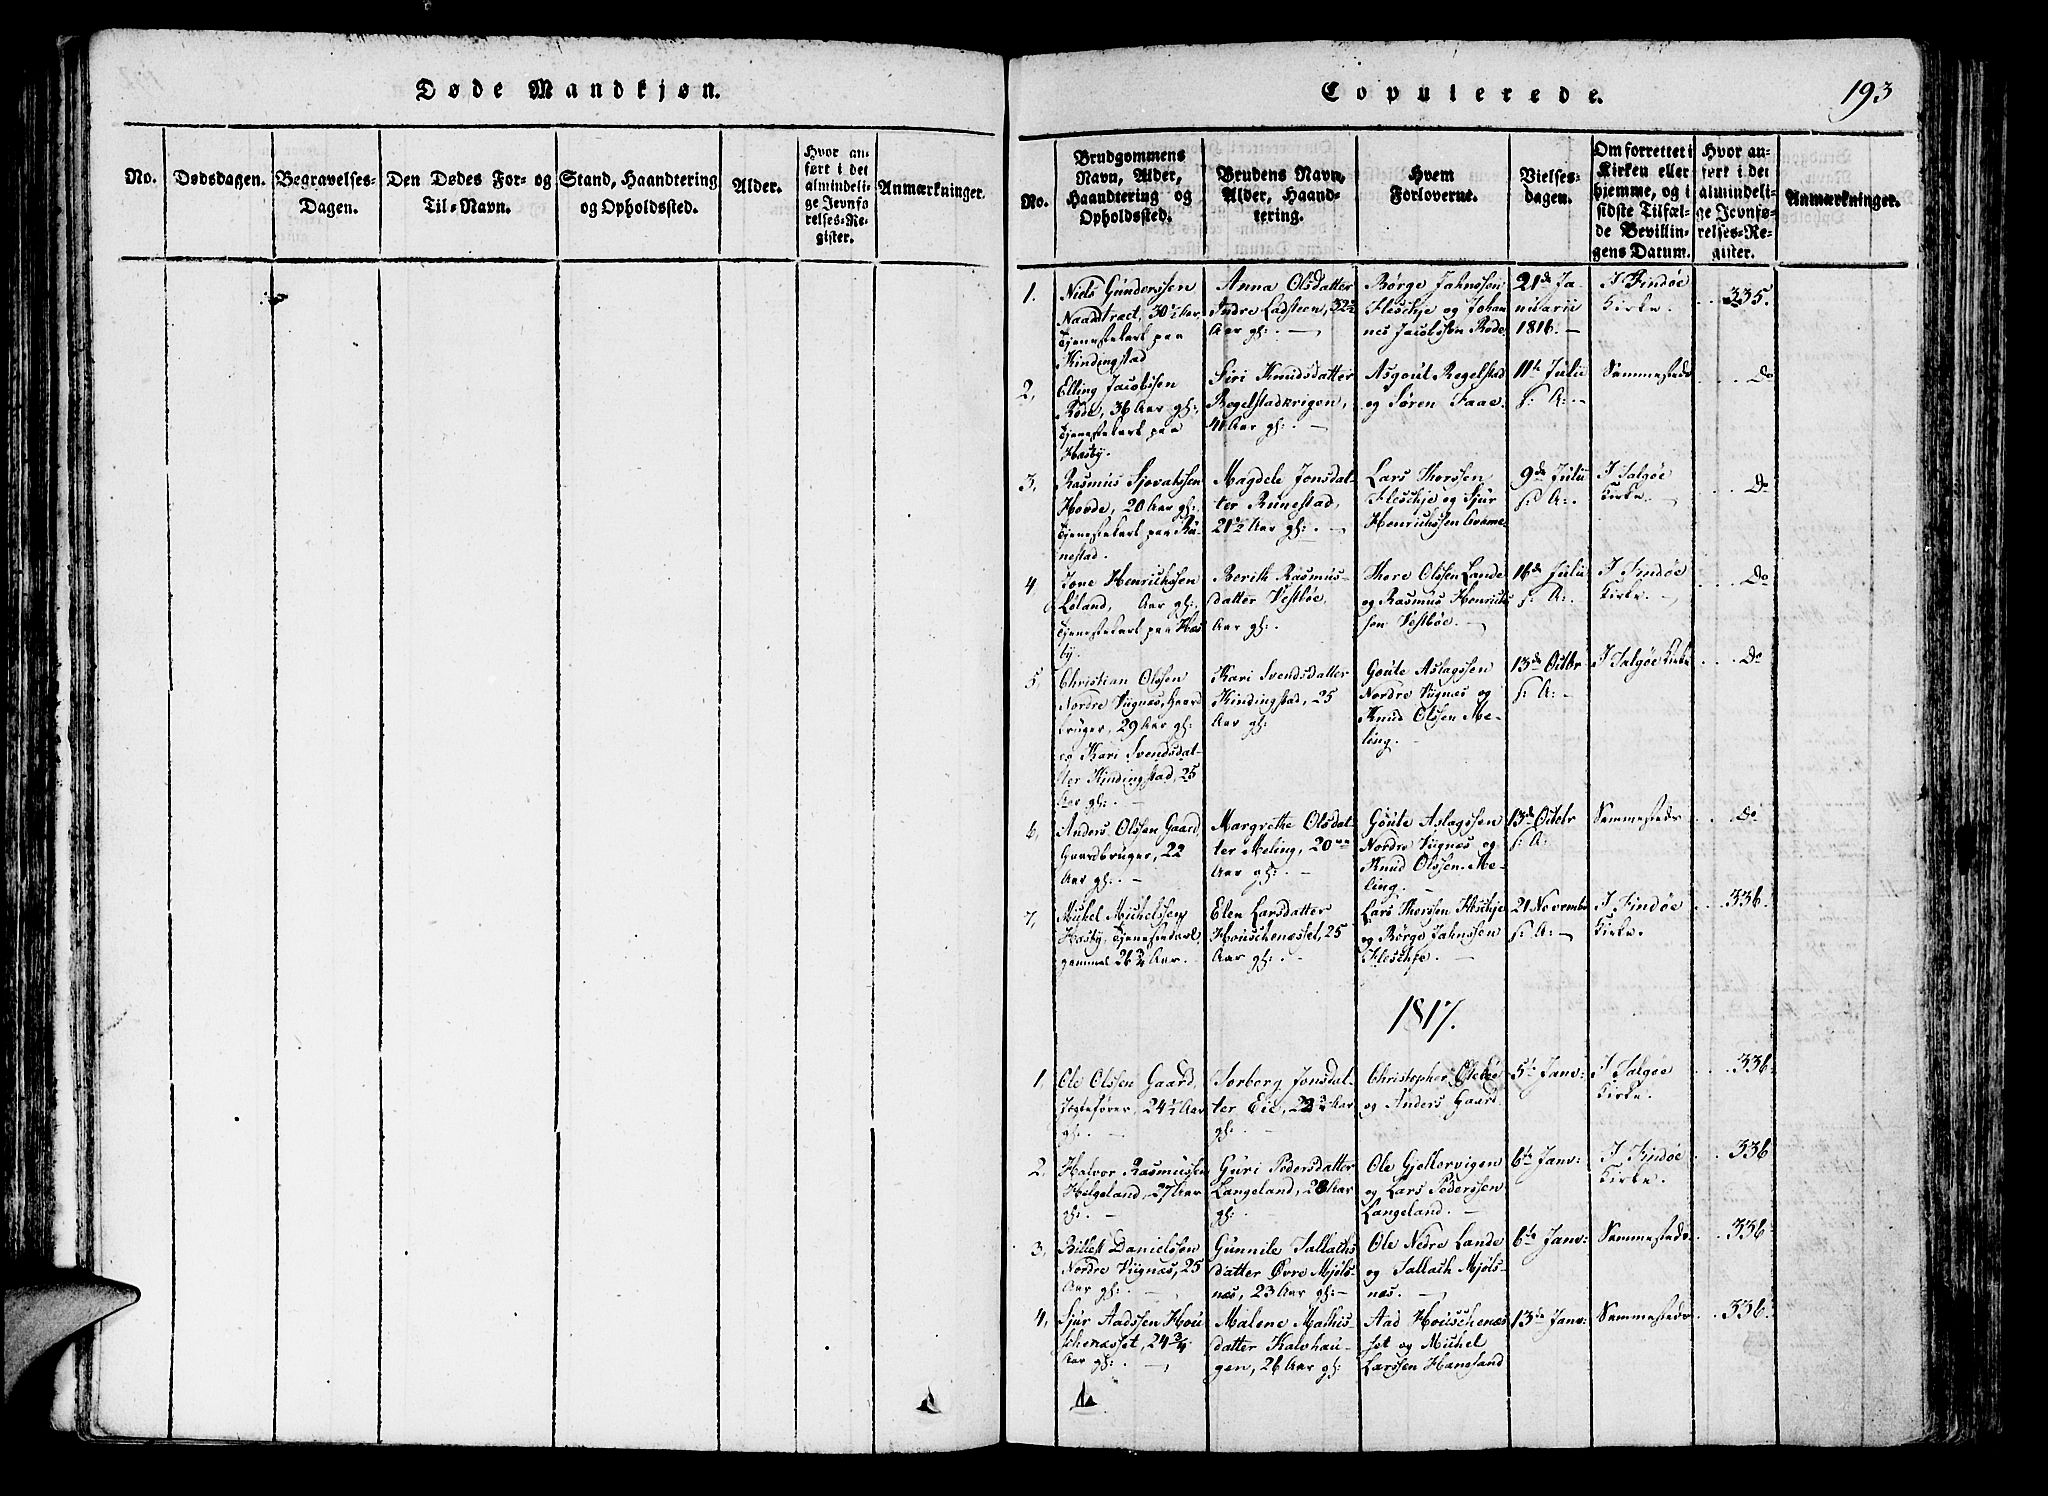 Døde Mandkjøn.
No.
Dødsdagen.
Begravelses-
Dagen.
Den Dødes For- og
Til-Navn.
Stand, Haandtering
og Opholdssted.
Alder.
Hvor an-
ført i det
almindeli-
ge Jevnfø-
relses-Re-
gister.
Anmærkninger.
Copulerede.
193
No.
Brudgommens
Navn, Alder,
Haandtering og
Opholdssted.
Brudens Navn,
Alder, Haand-
tering.
Hvem
Forloverne.
Vielses-
dagen.
Om forrettet i
Kirken eller
hjemme, og i
sidste Tilfæl-
de Bevillin-
gens Datum.
Hvor an-
ført i det
almindeli-
ge Jevnfø-
relses-Re-
gister.
Anmærkninger.
1.
Niels Gunderssen
Naadstract, 30½ Aar,
Tjenestekarl paa
Kindingstad
Anna Olsdatter
Indre Ladsteen, 32½
Aar gl:
Børge Jahnssen
Fleschje og Johan
nes Jacobssen Røde
21de Ja
nuarii
1816.
I Findøe
Kirke.
335.
2,
Elling Jacobssen
Røde, 36 Aar gl:
Tjenestekarl paa
Hæsby.
Siri Knudsdatter
Regelstadkrigen,
41 Aar gl:
Asgout Regelstad
og Søren Faae.
11te Julii
s: A:
Sammesteds
Do
3,
Rasmus Sjovatssen
Hovde, 20 Aar gl:
Tjenestekarl paa Ru-
nestad.
Magdele Jonsdat-
ter Runestad,
21½ Aar gl:
Lars Thorssen
Fleschje og Sjur
Henrichssen
9de Julii
s: A:
I Talgøe
Kirke.
Do
4
Jone Henrichssen
Løland, Aar gl:
Tjenestekarl paa Hæs
by.
Berith Rasmus-
datter Vestbøe,
Aar gl:
Thore Olssen Lande
og Rasmus Henrichs
sen Vestbøe.
16de Julii
s: A:
I Findøe
Kirke.
Do
5,
Christian Olssen
Nordre Vignæs, Gaard
bruger, 29 Aar gl:
og Kari Svendsdat-
ter Kindingstad, 25
Aar gl:
Kari Svendsdatter
Kindingstad, 25
Aar gl:
Goute Aslagssen
Nordre Vignæs og
Knud Olssen Me-
ling.
13de Octbr
s: A:
I Talgøe Kirke
Do
6,
Anders Olssen Gaard
Gaardbruger, 22
Aar gl:
Margrethe Olsdat-
ter Meling, 20
Aar gl:
Goute Aslagssen
Nordre Vignæs og
Knud Olssen Me-
ling.
13de Octobr
s: A:
Sammesteds
Do
7,
Mickel Mickelssen
Hæsby, Tjenestekarl,
gammel 26¾ Aar.
Elen Larsdatter
Houschenæsset, 25
Aar gl:
Lars Thorsen Fleschje
og Børge Jahnssen
Fleschje.
21 Novembr
s: A:
I Findøe
Kirke.
336.
1817.
1,
Ole Olssen Gaard,
Jægtefører, 24½ Aar
gl:
Torborg Jonsdat-
ter Eie, Aar
gl:
Christopher
og Anders Gaard.
5te Janv:
I Talgøe
Kirke.
336
2,
Halvor Rasmussen
Helgeland, 27 Aar
gl:
Guri Pedersdatter
Langeland, 28 Aar
gl:
Ole Gjellervigen
og Lars Pederssen
Langeland.
6te Janv:
I Findøe
Kirke.
336
3,
Danielssøn
Nordre Vignæs, 25
Aar gl:
Gunnile Tallachs
datter Øvre Mjøls-
næs, 23 Aar gl:
Ole Nedre Lande
og Tallach Mjøls-
næs.
6te Janv:
Sammesteds
336
4,
Sjur Aadssen Hou
schenæsset, 24¾
Aar gl:
Malene Mathis-
datter Kalvhau-
gen, 26 Aar gl:
Aad Houschenæs
set og Mickel
Larssen Haneland
13de Janv:
Sammesteds
336.